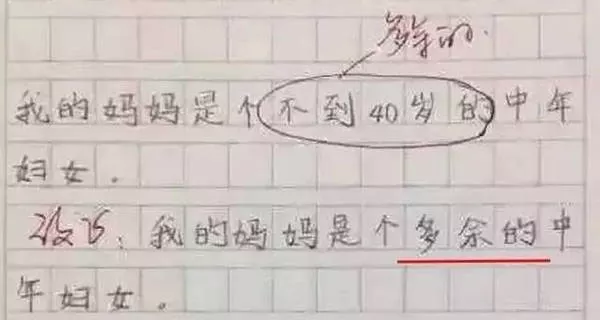 多余的.
我的妈妈是个不到40岁的中年
妇女.
改巧:我的妈妈是个多余的中
年妇女.